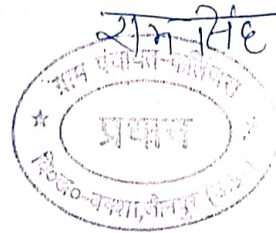 राम सिंह
ग्राम पंचायत-
प्रधान
वि०ख०-बक्शा, जौनपुर (उ.प्र.)